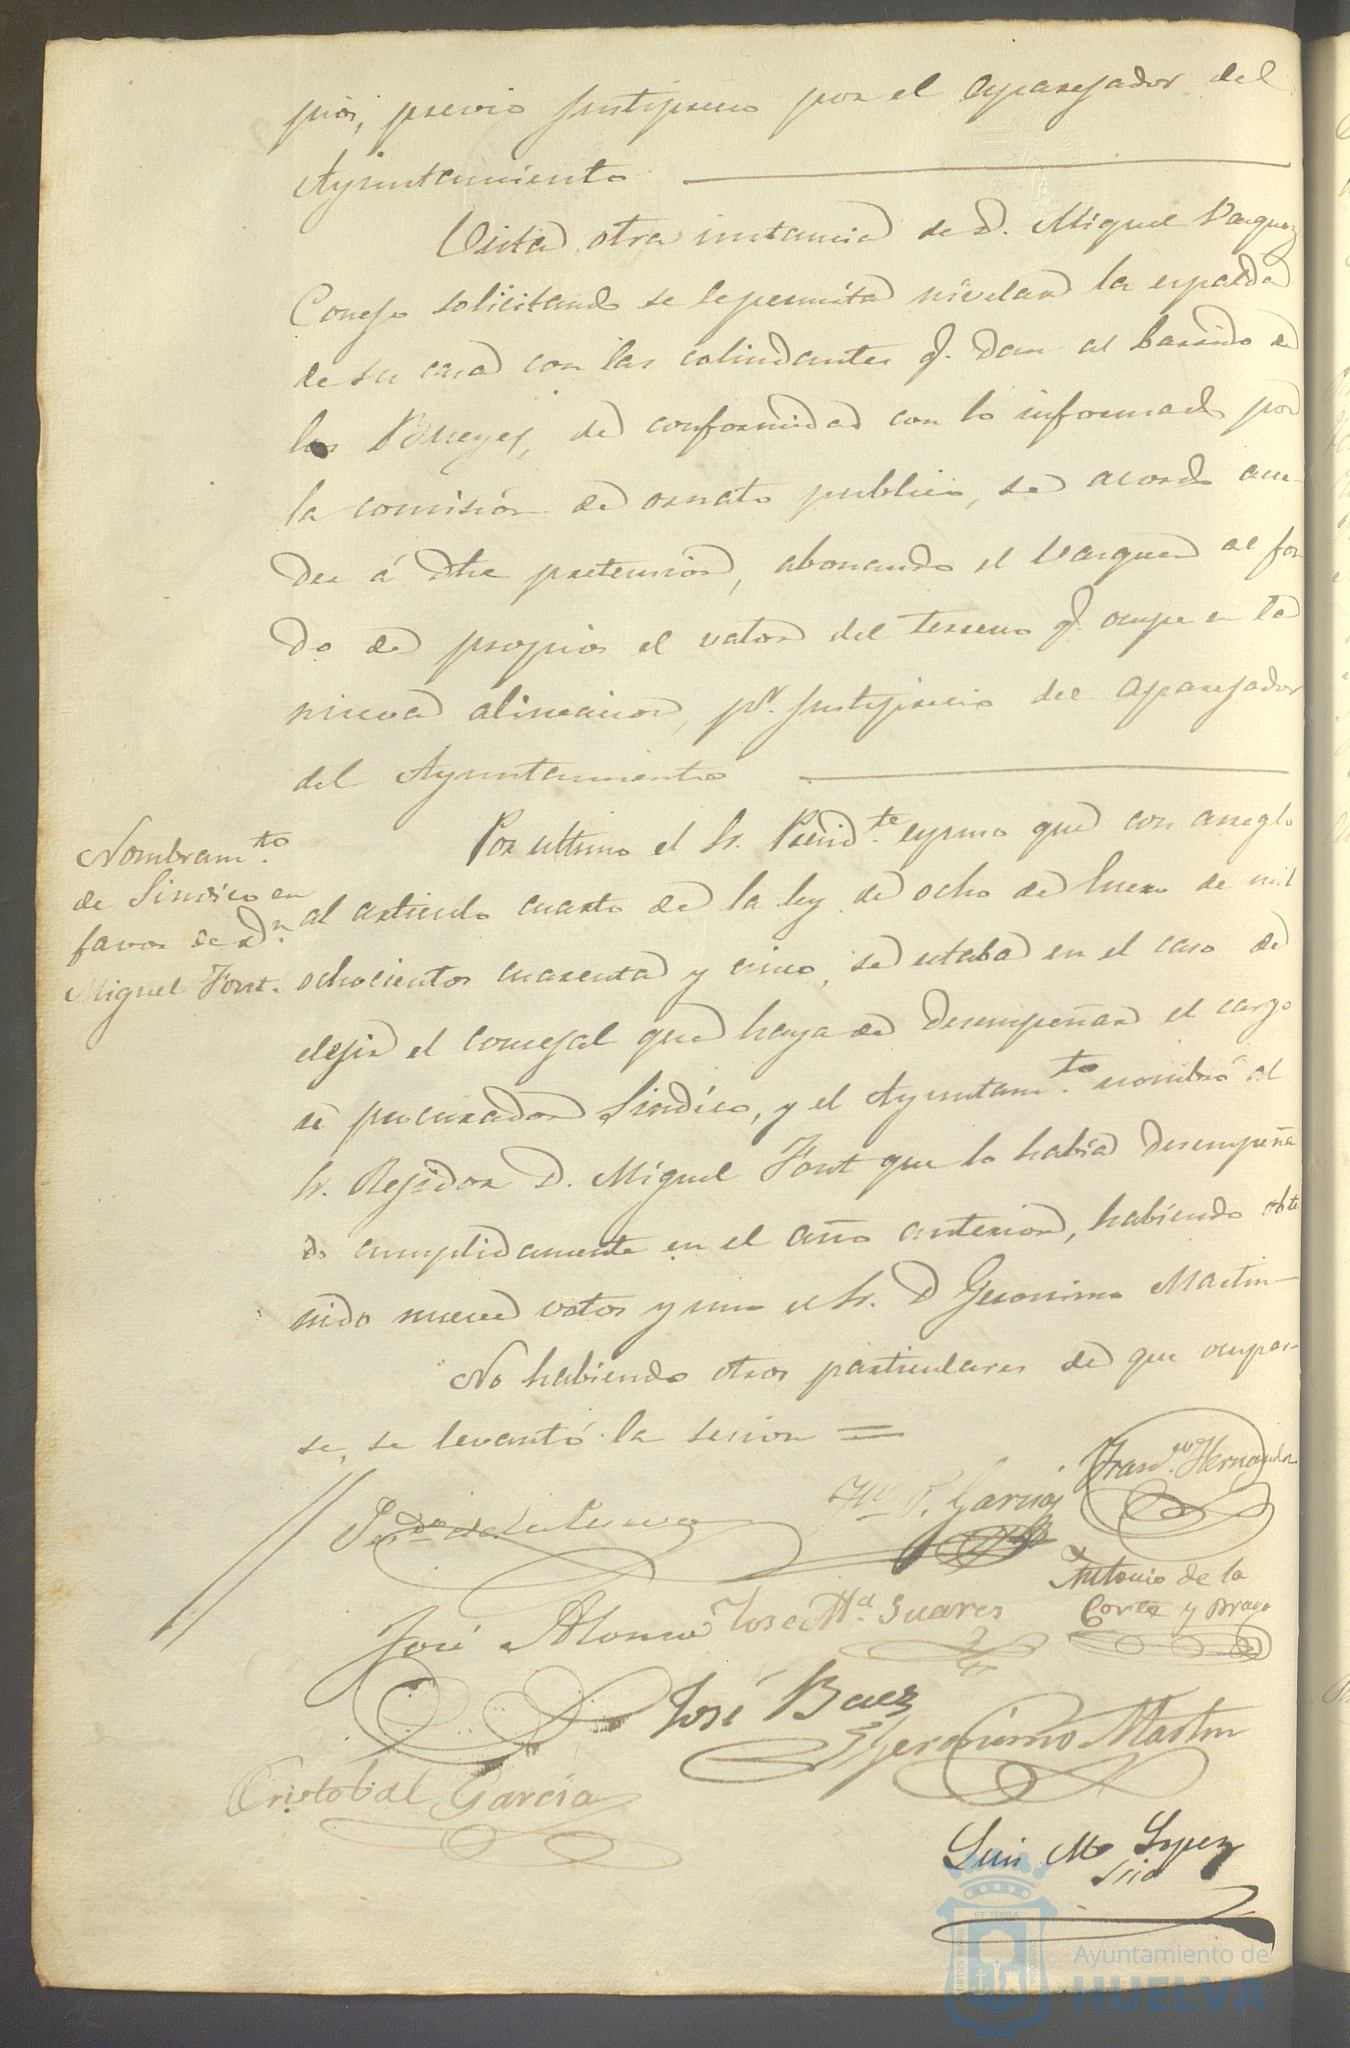 pios, previo justiprecio por el Aparejador del
Ayuntamiento
Vista otra instancia de D. Miguel Vazquez
Conejo solicitando se le permita nivelar la espalda
de su casa con las colindantes q. dan al barrido de
los Bueyes, de conformidad con lo informado por
la comisión de ornato publico, se acordó acce
der á dha pretension, abonando el Vazquez al fon
do de propios el valor del terreno q. ocupe en la
nueva alineacion, pr. justiprecio del aparejador
del Ayuntamiento
Nombramto.
de Sindico en
favor de Dn.
Miguel Font.
Por ultimo el Sr. Presidte. espuso que con arreglo
al articulo cuarto de la ley de ocho de Enero de mil
ochocientos cuarenta y cinco, se estaba en el caso de
elejir el concejal que haya de desempeñar el cargo
de procurador Sindico, y el Ayuntamto. nombró al
Sr. Rejidor D. Miguel Font que lo habia desempeña
do cumplidamente en el año anterior, habiendo obte
nido nueve votos y uno el Sr. D Geronimo Martin
No habiendo otros particulares de que ocupar
se, se levantó la sesion =
Franco. Hernandez
F. Garcia
de la
Antonio de la
Corte y Bravo
José Alonso
Jose Ma. Suares
José Baez
Geronimo Martin
Cristobal Garcia
Luis Ma Lopez
Srio
Ayuntamiento de
HUELVA